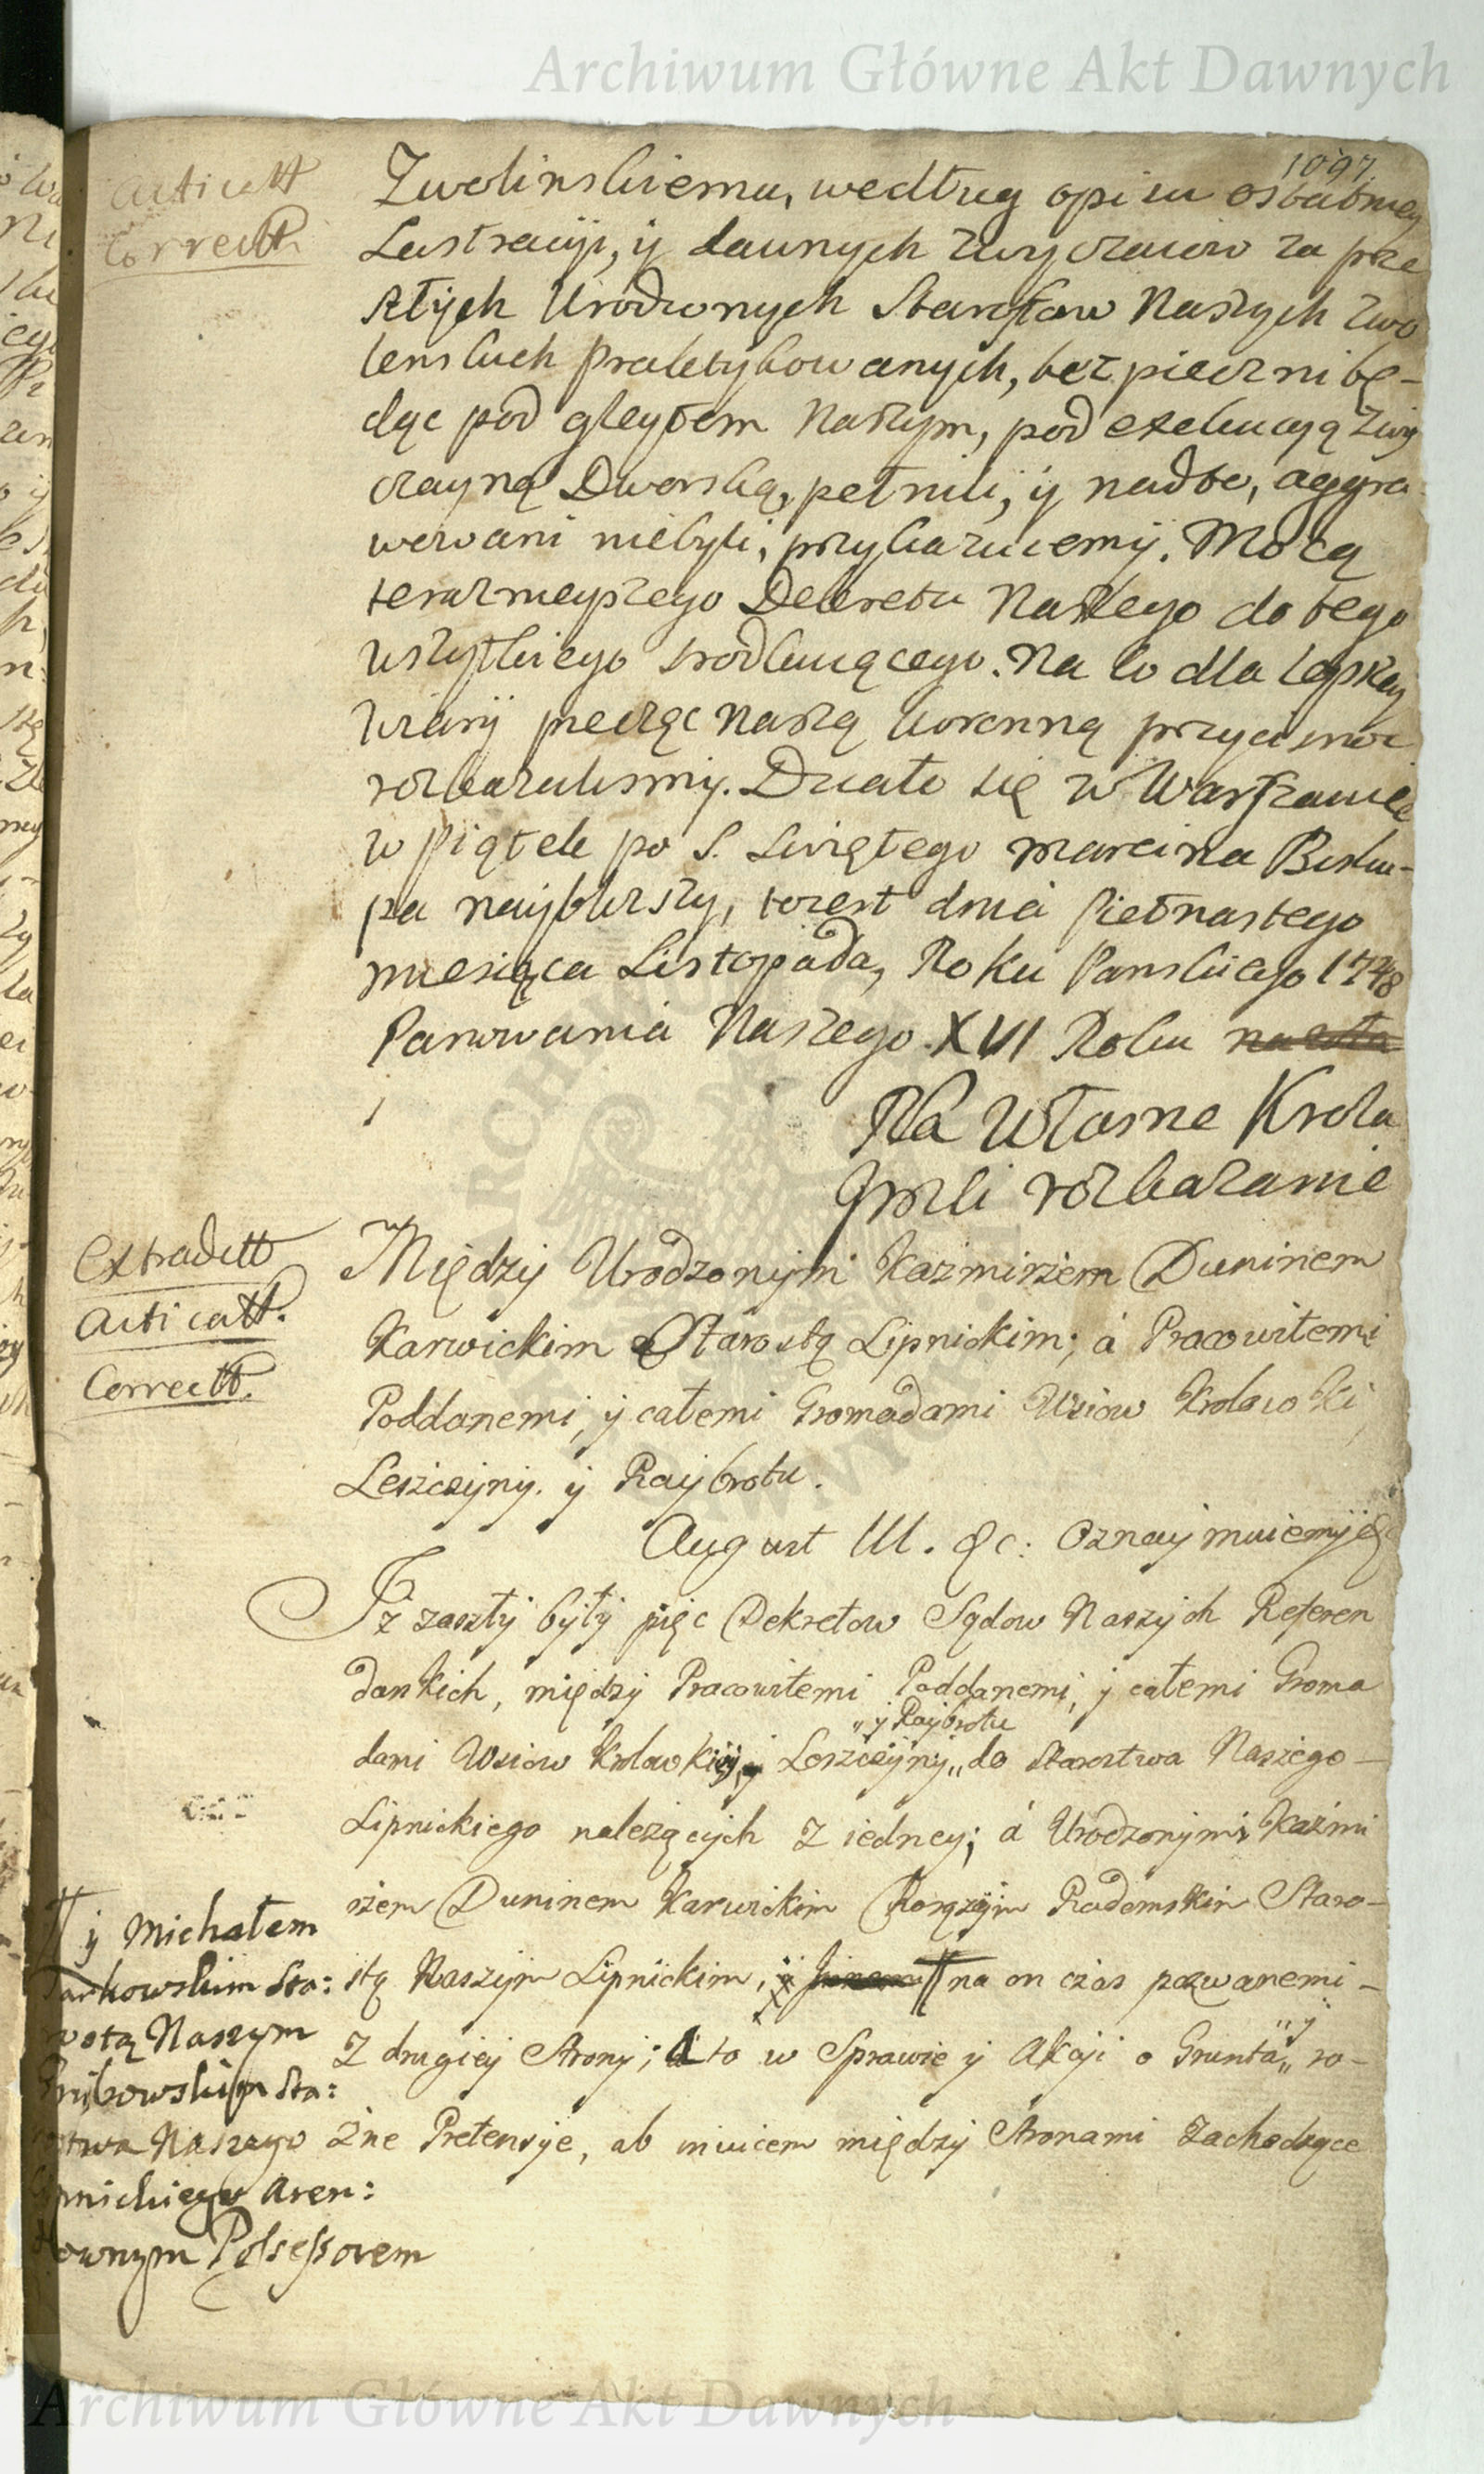 Archiwum Główne Akt Dawnych
1097
Acticatt
Correctt
Zwolinskiemu, według opisu ostatniey
Lustracyi, ÿ dawnych zwyczaiow za prze
szłÿch Urodzonych Starostow Naszych Zwo
lenskich praktykowanych, bezpieczni bę-
dąc pod gleytem Naszym, pod exekucyą zwy
czayną Dworską, pełnili, ÿ nadto, aggra
wowani niebyli, przykazuiemÿ. Mocą
teraznieyszego Dekretu Naszego do tego
wszytkiego srodkuiącego. Na co dla lepszey
wiary pieczęc Naszą koronną przycisnąc
rozkazalismy. Działo się w Warszawie
w piątek po S. Swiętego Marcina Bisku-
pa nayblizszy, to iest dnia Piętnastego
miesiąca Listopada, Roku Panskiego 1748
Panowania Naszego XVI Roku
Na Własne Krola
Jmsci rozkazanie
Extraditt
Acticatt.
Correctt.
Między Urodzonymi Kazmirzem Duninem
Karwickim Starostą Lipnickim; á Pracowitemi
Poddanemi, ÿ całemi Gromadami Wsiow Krolowki
Leszczyny. ÿ Raÿbrotu.
August III. &c: Oznaymuiemÿ &c
Jż zaszłÿ byłÿ pięc Dekretow Sądow Naszÿch Referen
darskich, międzÿ Pracowitemi Poddanemi, ÿ całemi Groma
„ÿ Raÿbrotu
dami Wsiow Krolowkiÿ, Leszczÿnÿ„ do Starostwa Naszego
Lipnickiego należącÿch z iedneÿ; á Urodzonÿmi Kaźmi
rzem Duninem Karwickim Chorążÿm Radomskim Staro-
stą Naszÿm Lipnickim, # na on czas pozwanemi -
z drugieÿ Stronÿ; A to w Sprawie ÿ Akcÿi o Grunta „ÿ„ ro-
żne Pretensÿe, ab invicem międzÿ Stronami zachodzące
# ÿ Michałem
Tarkowskim Sta:
rostą Naszym
Grzÿbowskim Sta:
rostwa Naszego
Lipnickiego Aren:
downym Possessorem
Archiwum Główne Akt Dawnych